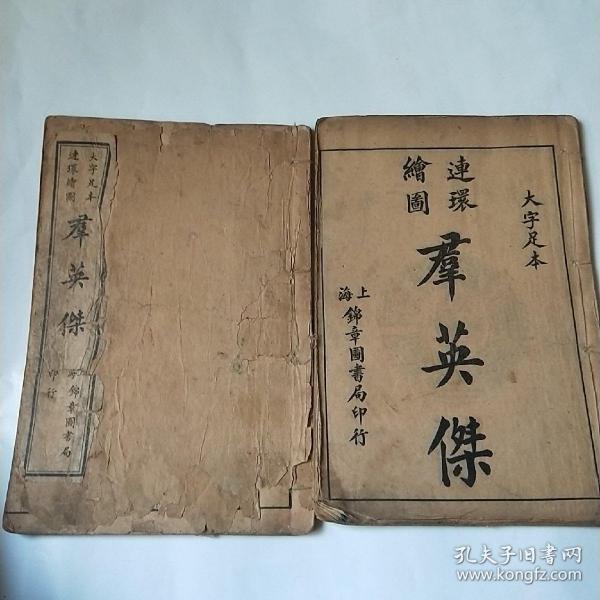 大字足本
連環繪圖
羣英傑
錦章圖書局
印行
大字足本
連環
繪圖
羣英傑
上海
錦章圖書局印行
孔夫子旧书网
www.kongfz.com